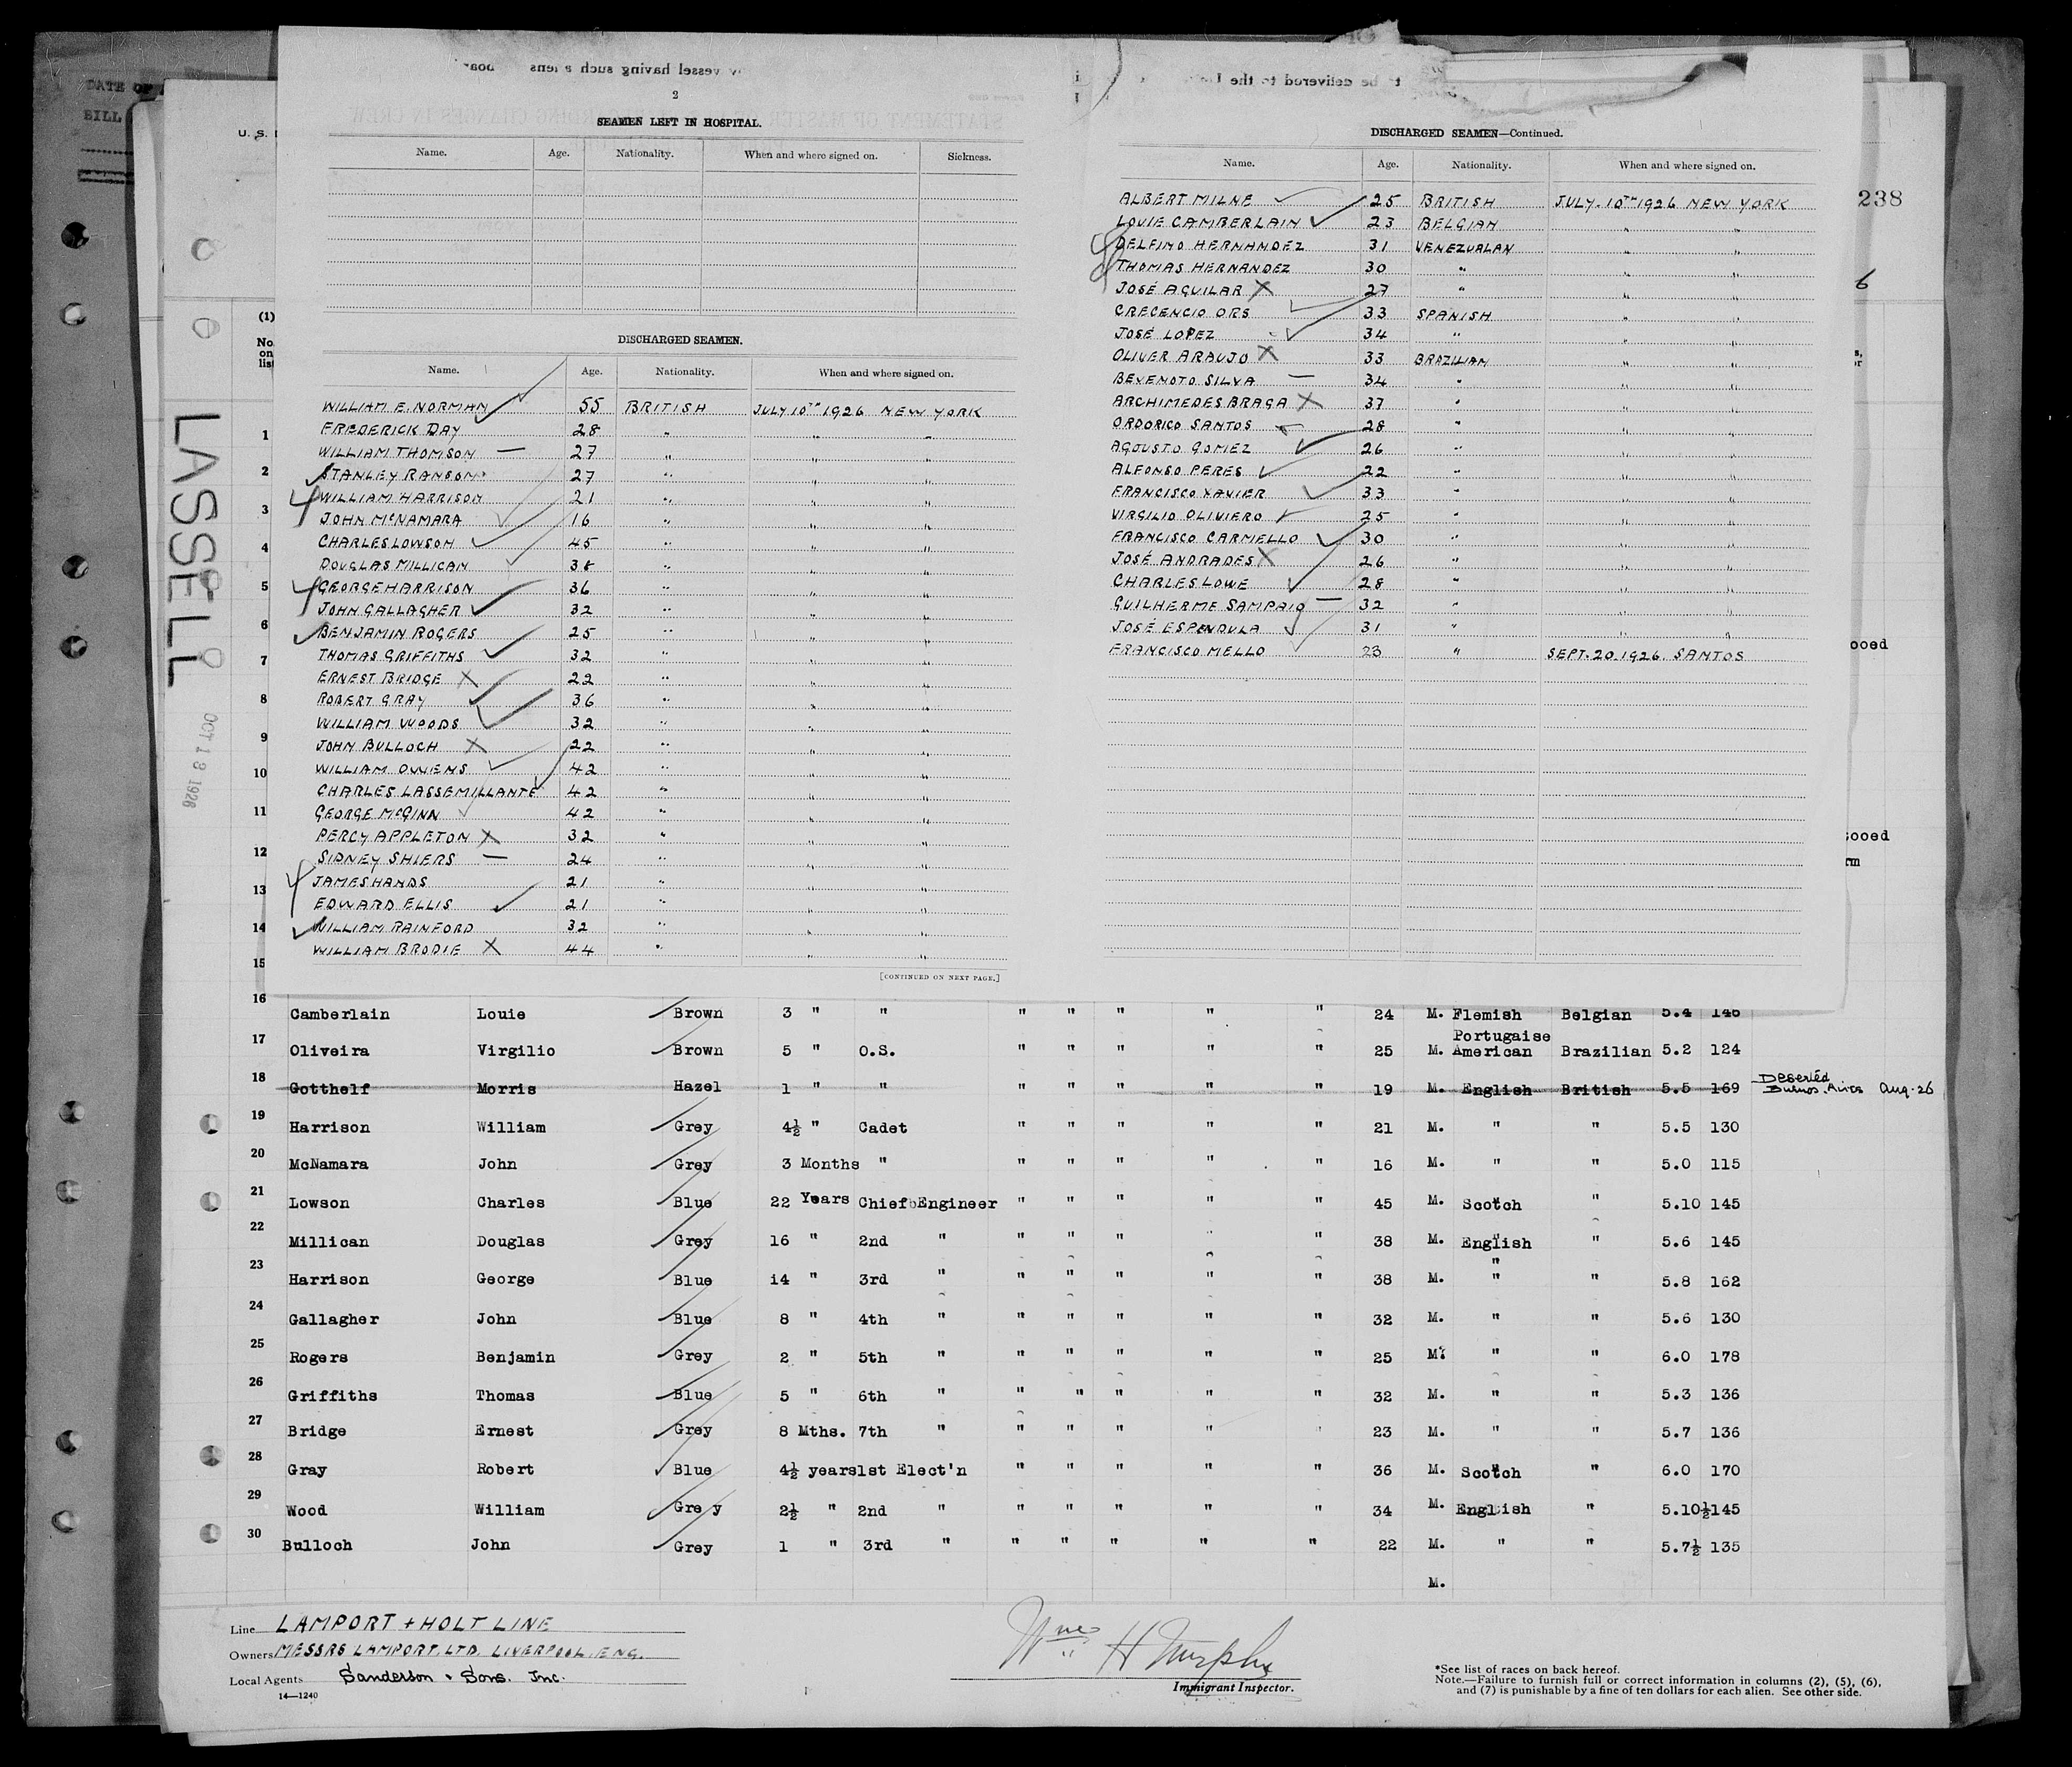 DATE OF
BILL
U. S.
238
6
2
SEAMEN LEFT IN HOSPITAL.
Name. Age. Nationality. When and where signed on. Sickness.
DISCHARGED SEAMEN.
Name. Age. Nationality. When and where signed on.
WILLIAM E. NORMAN 55 BRITISH JULY 10TH 1926 NEW YORK
FREDERICK DAY 28 " " "
WILLIAM THOMSON — 27 " " "
STANLEY RANSON 27 " " "
WILLIAM HARRISON 21 " " "
JOHN McNAMARA 16 " " "
CHARLES LOWSON 45 " " "
DOUGLAS MILLICAN 38 " " "
GEORGE HARRISON 36 " " "
JOHN GALLAGHER 32 " " "
BENJAMIN ROGERS 25 " " "
THOMAS GRIFFITHS 32 " " "
ERNEST BRIDGE X 22 " " "
ROBERT GRAY 36 " " "
WILLIAM WOODS 32 " " "
JOHN BULLOCH X 22 " " "
WILLIAM OWENS 42 " " "
CHARLES LASSEMILLANTE 42 " " "
GEORGE McGINN 42 " " "
PERCY APPLETON X 32 " " "
SIDNEY SHIERS — 24 " " "
JAMES HANDS 21 " " "
EDWARD ELLIS 21 " " "
WILLIAM RAINFORD 32 " " "
WILLIAM BRODIE X 44 " " "
[CONTINUED ON NEXT PAGE.]
DISCHARGED SEAMEN—Continued.
Name. Age. Nationality. When and where signed on.
ALBERT MILNE 25 BRITISH JULY. 10TH 1926 NEW YORK
LOUIE CAMBERLAIN 23 BELGIAN " "
DELFINO HERNANDEZ 31 VENEZUALAN " "
THOMAS HERNANDEZ 30 " " "
JOSÉ AGUILAR X 27 " " "
CRECENCIO ORS 33 SPANISH " "
JOSÉ LOPEZ 34 " " "
OLIVER ARAUJO X 33 BRAZILIAN " "
BEVENOTO SILVA — 34 " " "
ARCHIMEDES BRAGA X 37 " " "
ORDORICO SANTOS 28 " " "
AGOUSTO GOMEZ 26 " " "
ALFONSO PERES 22 " " "
FRANCISCO XAVIER 33 " " "
VIRGILIO OLIVIERO 25 " " "
FRANCISCO CARMELLO 30 " " "
JOSÉ ANDRADES X 26 " " "
CHARLES LOWE 28 " " "
GUILHERME SAMPAIO — 32 " " "
JOSÉ ESPENDULA 31 " " "
FRANCISCO MELLO 23 " SEPT. 20. 1926. SANTOS
(1)
No.
on
list
LASSELL
OCT 13 1926
1
2
3
4
5
6
7
8
9
10
11
12
13
14
15
16 Camberlain Louie Brown 3 " " " " " " " 24 M. Flemish Belgian 5.4 146
17 Oliveira Virgilio Brown 5 " O.S. " " " " " 25 M. Portugaise American Brazilian 5.2 124
18 Gotthelf Morris Hazel 1 " " " " " " " 19 M. English British 5.5 169 Deserted Buenos Aires Aug. 26
19 Harrison William Grey 4½ " Cadet " " " " " 21 M. " " 5.5 130
20 McNamara John Grey 3 Months " " " " " " 16 M. " " 5.0 115
21 Lowson Charles Blue 22 Years Chief Engineer " " " " " 45 M. Scotch " 5.10 145
22 Millican Douglas Grey 16 " 2nd " " " " " " 38 M. English " 5.6 145
23 Harrison George Blue 14 " 3rd " " " " " " 38 M. " " 5.8 162
24 Gallagher John Blue 8 " 4th " " " " " " 32 M. " " 5.6 130
25 Rogers Benjamin Grey 2 " 5th " " " " " " 25 M. " " 6.0 178
26 Griffiths Thomas Blue 5 " 6th " " " " " " 32 M. " " 5.3 136
27 Bridge Ernest Grey 8 Mths. 7th " " " " " " 23 M. " " 5.7 136
28 Gray Robert Blue 4½ years 1st Elect'n " " " " " 36 M. Scotch " 6.0 170
29 Wood William Grey 2½ " 2nd " " " " " " 34 M. English " 5.10½ 145
30 Bulloch John Grey 1 " 3rd " " " " " " 22 M. " " 5.7½ 135
M.
Line LAMPORT + HOLT LINE
Owners MESSRS LAMPORT. LTD. LIVERPOOL. ENG.
Local Agents Sanderson & Sons. Inc.
14—1240
Wm H Murphy
Immigrant Inspector.
*See list of races on back hereof.
Note.—Failure to furnish full or correct information in columns (2), (5), (6),
and (7) is punishable by a fine of ten dollars for each alien. See other side.